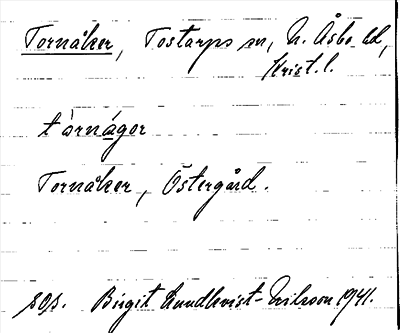 Tornåker, Tostarps sn, N. Åsbo hd,
Krist. l.
tòrnágor
Tornåker, Östergård.
sgs. Birgit Lundkvist-Nilsson 1941.